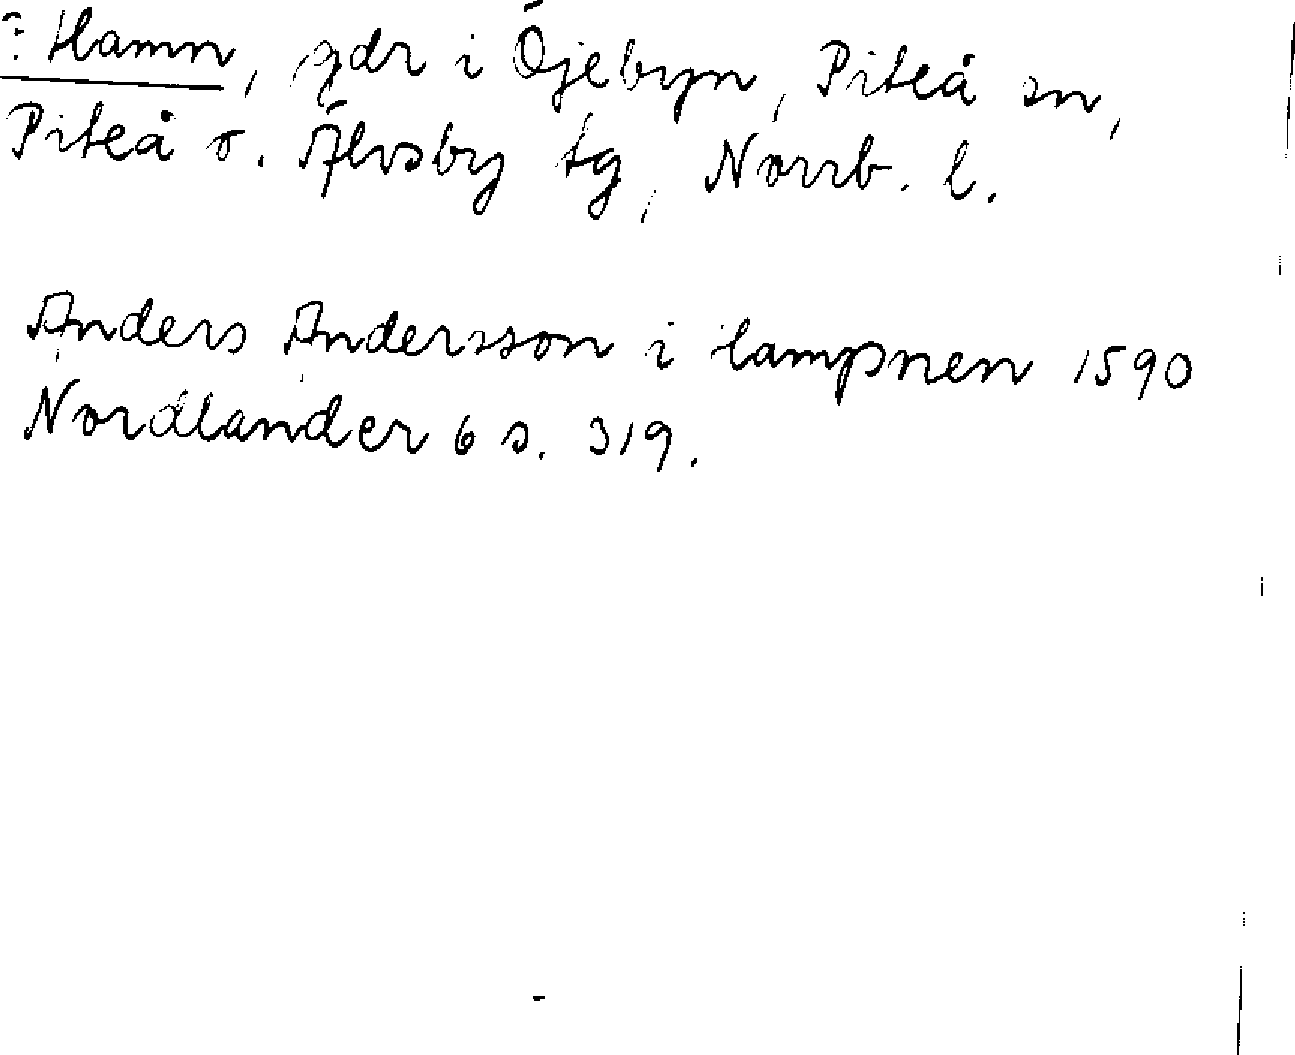 ? Hamn, gdr i Öjebyn, Piteå sn,
Piteå o. Älvsby tg, Norrb. l.
Anders Andersson i hampnen 1590
Nordlander 6 s. 319.